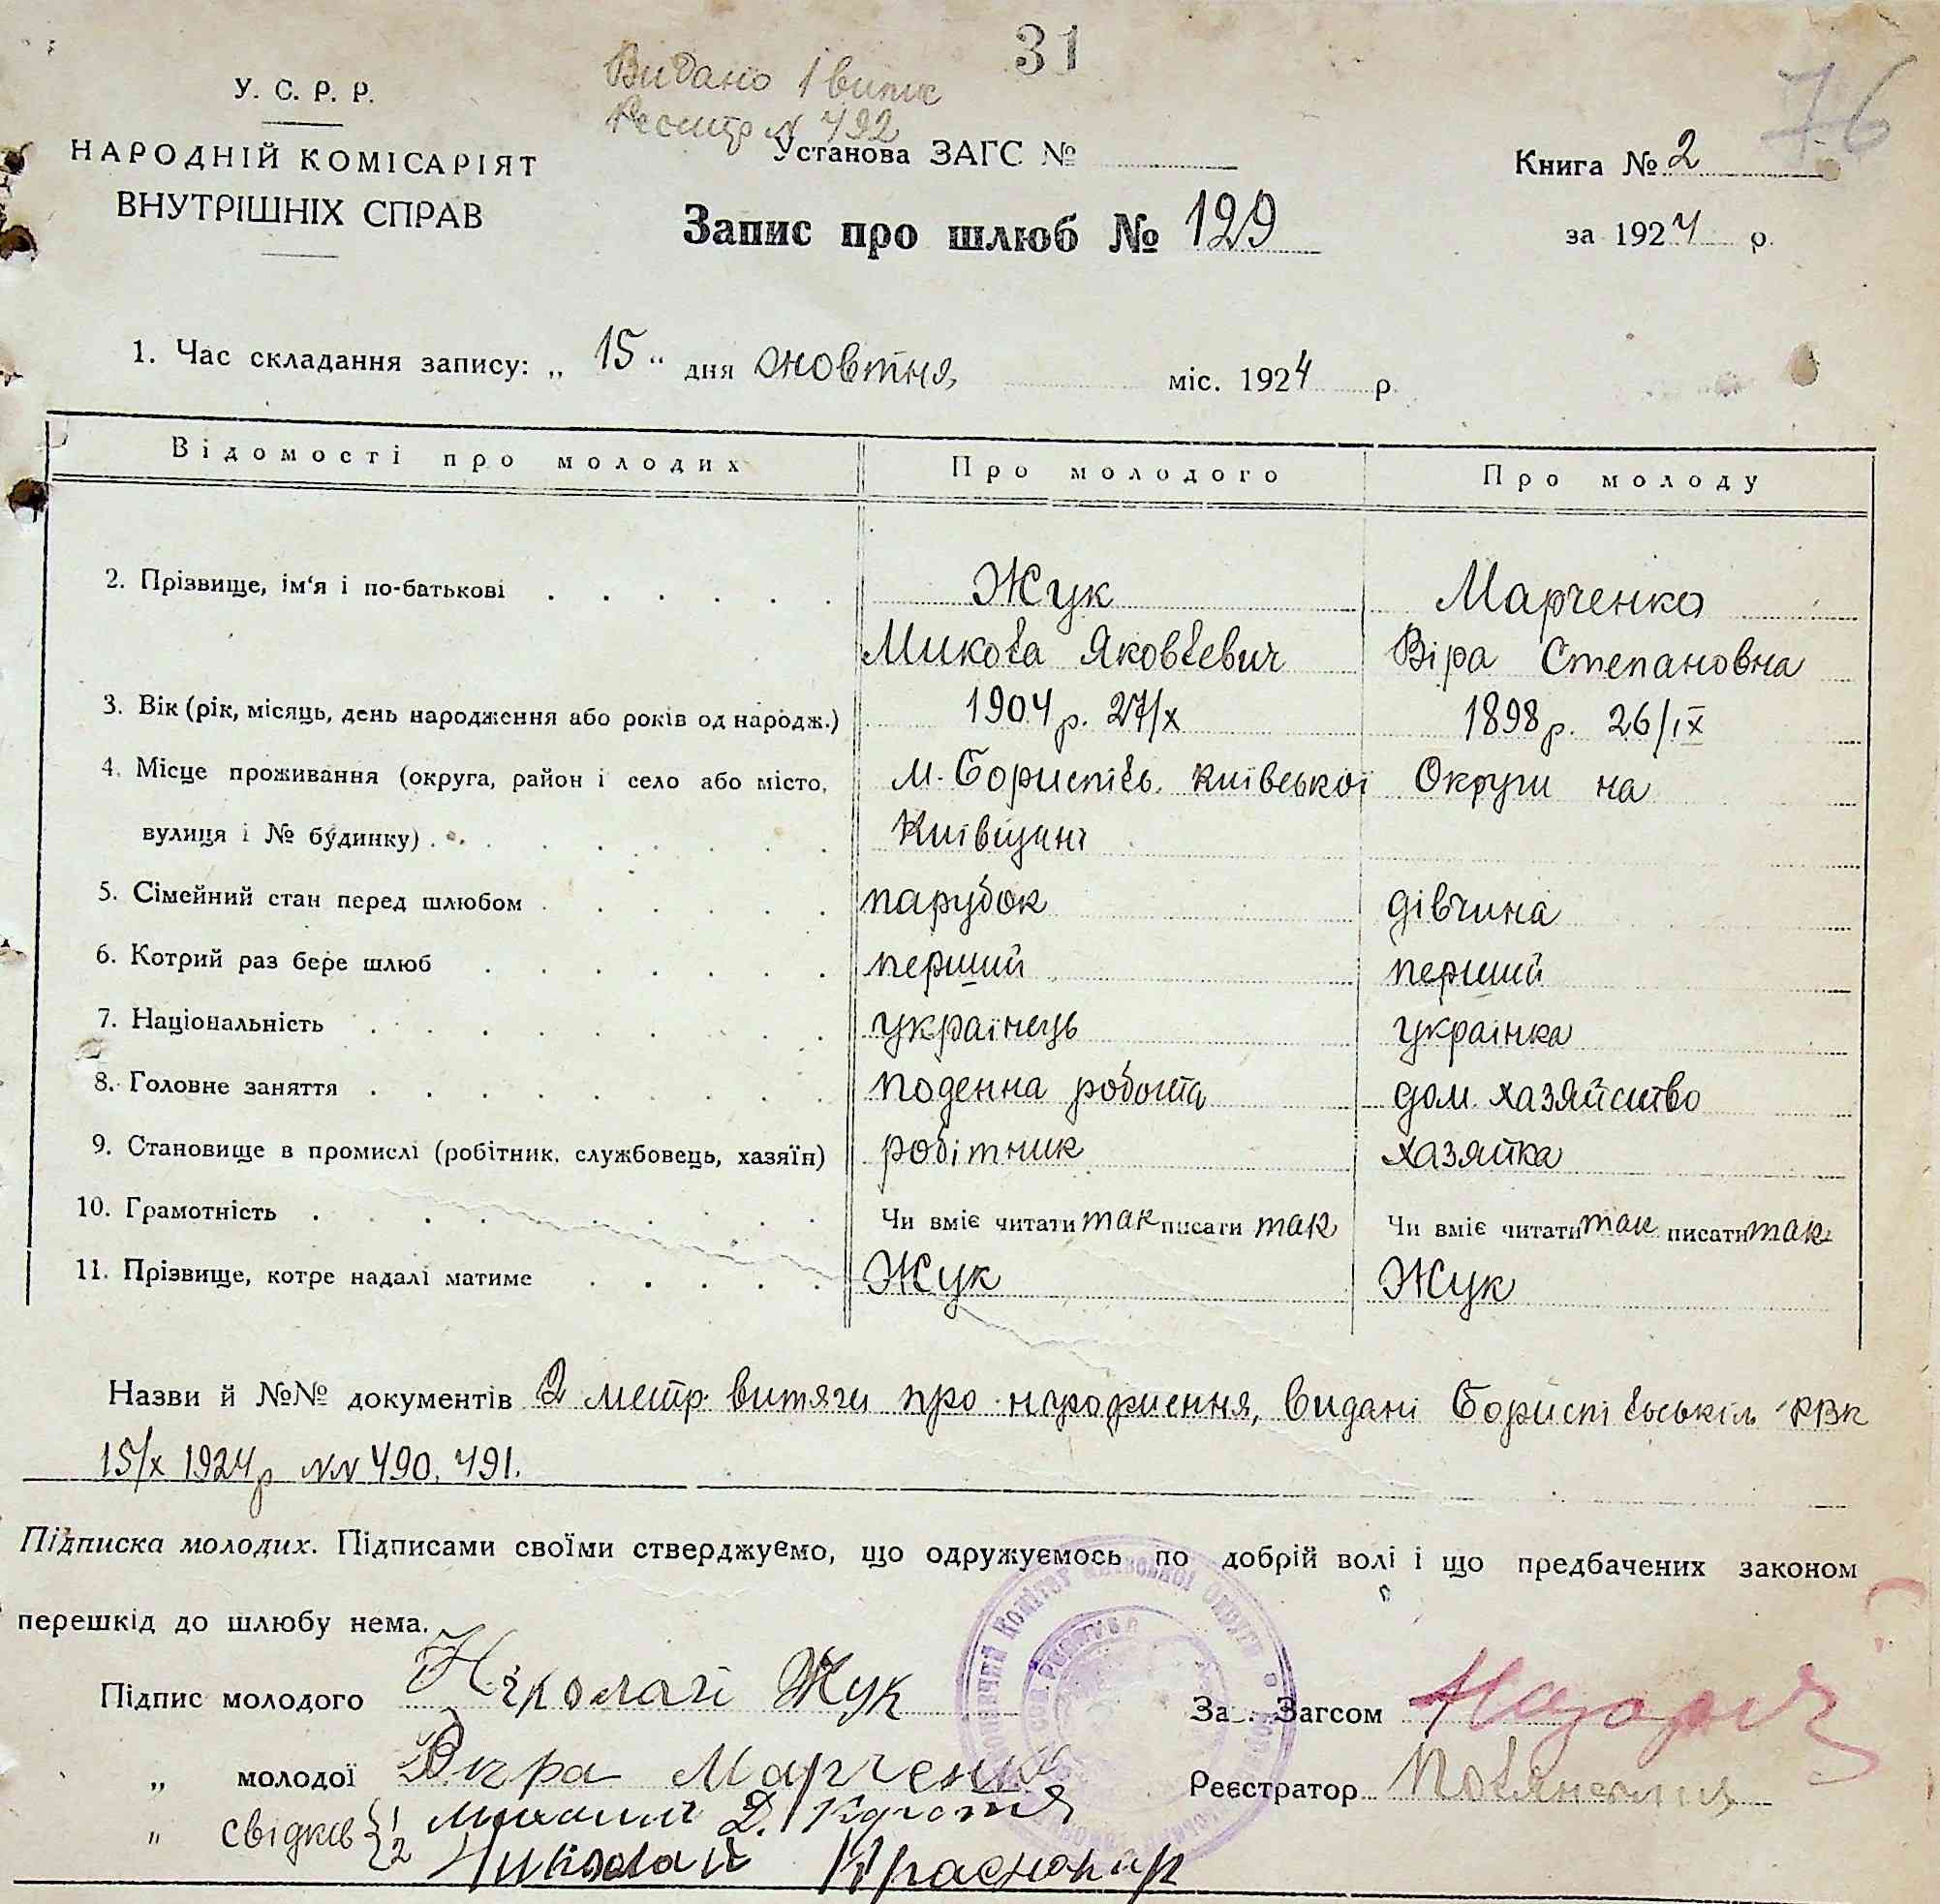 31
76
Видано 1 випис
Реєстр N 492
У. С. Р. Р.
НАРОДНІЙ КОМІСАРІЯТ
ВНУТРІШНІХ СПРАВ
Установа ЗАГС №
Книга № 2
за 1924 р.
Запис про шлюб № 129
1. Час складання запису: „ 15 " дня жовтня міс. 1924 р.
Відомості про молодих Про молодого Про молоду
2. Прізвище, ім'я і по-батькові Жук Марченко
Микола Яковлевич Віра Степановна
3. Вік (рік, місяць, день народження або років од народж.) 1904 р. 27/X 1898 р. 26/IX
4. Місце проживання (округа, район і село або місто, м. Бориспіль Київської Округи на
вулиця і № будинку) Київщині
5. Сімейний стан перед шлюбом парубок дівчина
6. Котрий раз бере шлюб перший перший
7. Національність українець українка
8. Головне заняття поденна робота дом. хазяйство
9. Становище в промислі (робітник, службовець, хазяїн) робітник хазяйка
10. Грамотність Чи вміє читати так писати так Чи вміє читати так писати так
11. Прізвище, котре надалі матиме Жук Жук
Назви й №№ документів 2 метр. витяги про народження, видані Бориспільським РВК
15/X 1924 р NN 490, 491.
Підписка молодих. Підписами своїми стверджуємо, що одружуємось по добрій волі і що предбачених законом
перешкід до шлюбу нема.
Підпис молодого Ніколай Жук
За . Загсом
„ молодої Вера Марченко
Реєстратор
„ свідків 1
2 Николай